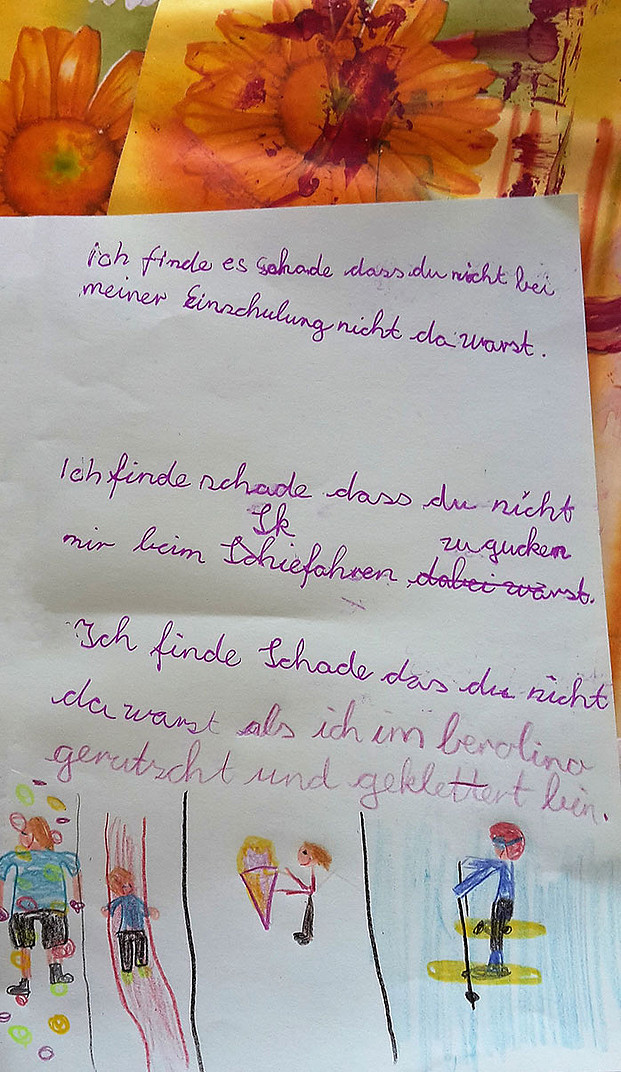 ich finde es schade dass du nicht bei
meiner Einschulung nicht da warst.
Ich finde schade dass du nicht
Sk zugucken
mir beim Schiefahren dabei warst.
Ich finde Schade das du nicht
da warst als ich im berolino
gerutscht und geklettert bin.